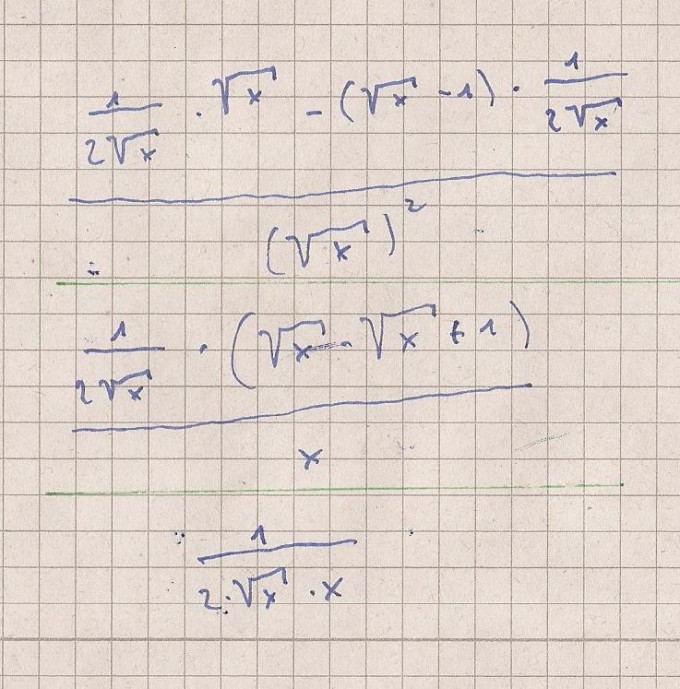 1/(2√x) · √x - (√x - 1) · 1/(2√x)
(√x)²
1/(2√x) · (√x - √x + 1)
x
1
2·√x · x